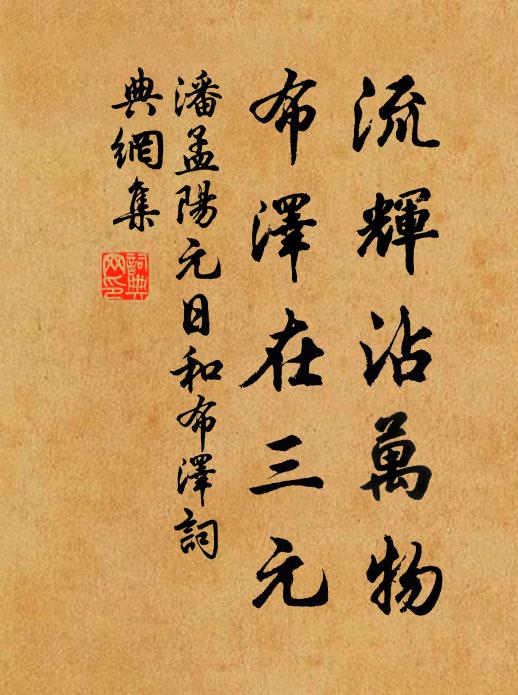 流輝沾萬物
布澤在三元
潘孟陽元日和布澤詞
典網集
詞典網印